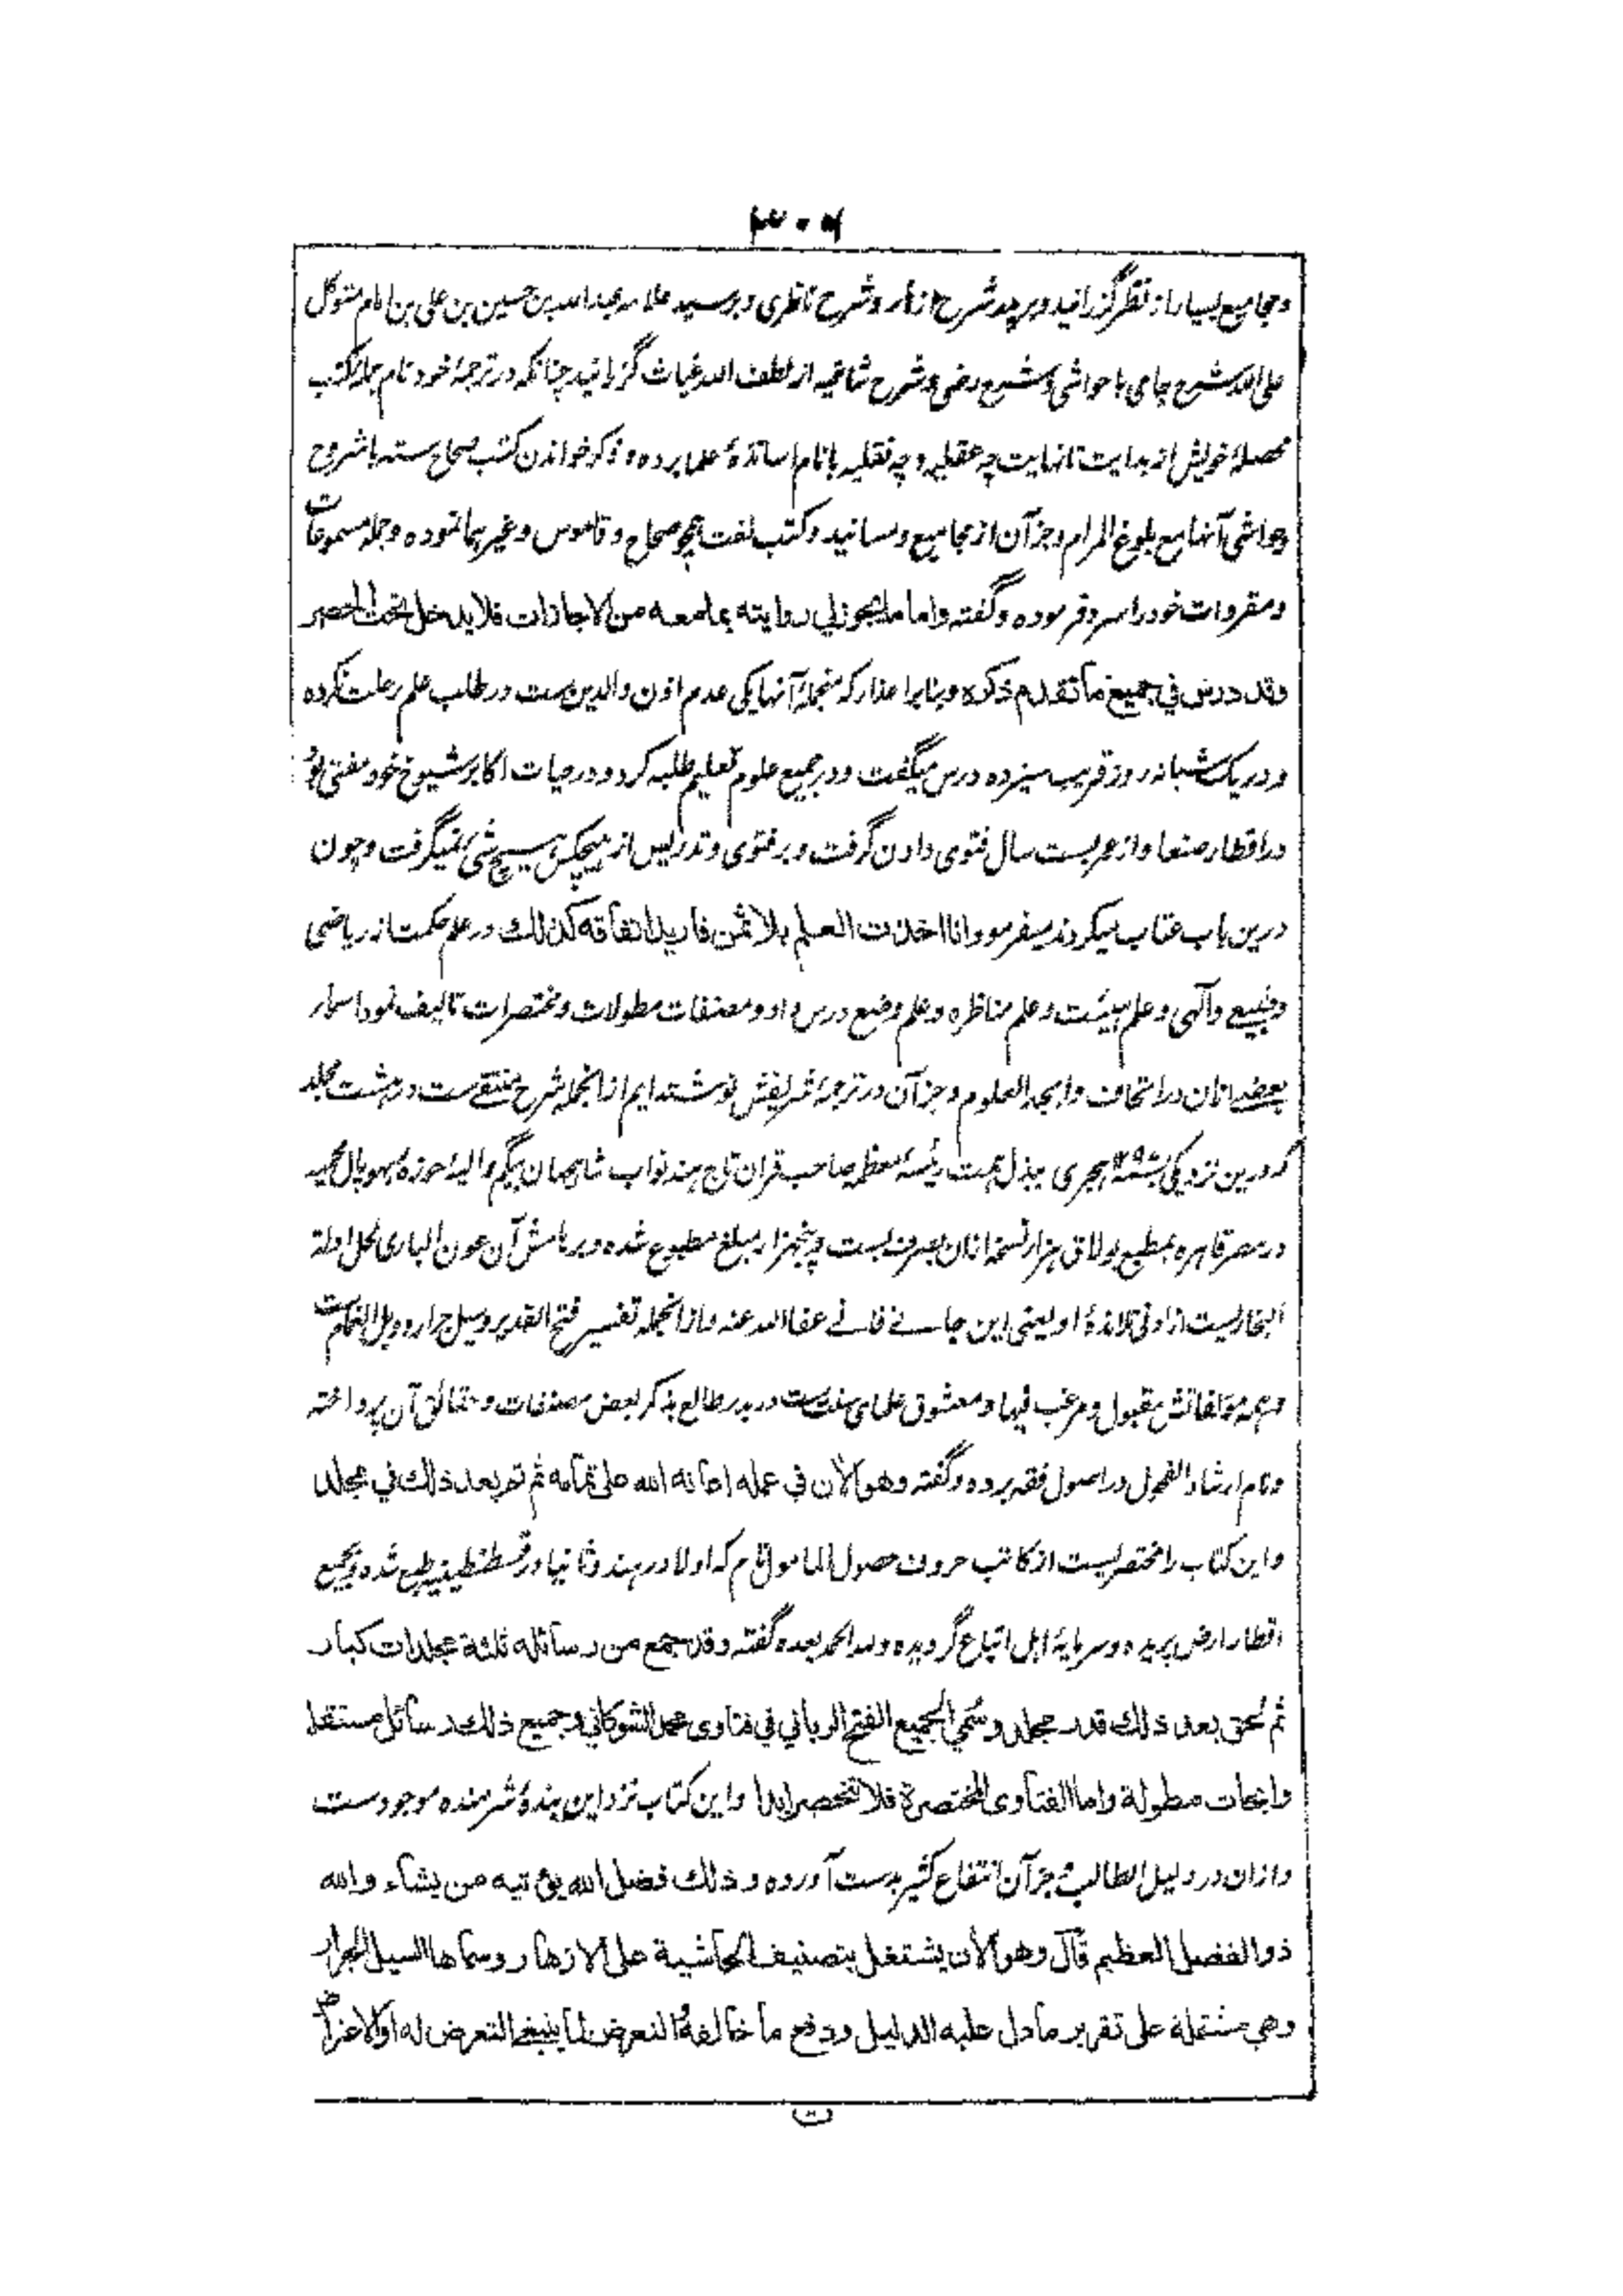 و مجامیع بسیار از نظر گزرانید و بر پدر شرح ازهار و شرح ناظری و بر سید علامه عبدالله بن حسین بن علی بن امام متوکل
علی الله شرح جامی با حواشی و شرح رضی و شرح شافیه از لطف الله غیاث گزرانید چنانکه در ترجمهٔ خود نام جمله کتب
محصلهٔ خویش از بدایت تا نهایت چه عقلیه و چه نقلیه با نام اساتذهٔ علما برده و ذکر خواندن کتب صحاح سته با شروح
و حواشی آنها مع بلوغ المرام و جز آن از مجامیع و مسانید و کتب لغت همچو صحاح و قاموس و غیرهما نموده و جمله مسموعات
و مقروات خود را سرد فرموده و گفته واما ما يجوز لي روايته بما معه من الاجازات فلا يدخل تحت الحصر
وقد درس في جميع ما تقدم ذكره و بنابر اعذار که منجملهٔ آنها یکی عدم اذن والدین ست در طلب علم رحلت نکرده
و در یک شبانه روز قریب سیزده درس میگفت و در جمیع علوم تعلیم طلبه کرد و در حیات اکابر شیوخ خود مفتی بود
در اقطار صنعا و از عمر بست سال فتوی دادن گرفت و بر فتوی و تدریس از هیچکس هیچ شیٔ نمیگرفت و چون
درین باب عتاب میکردند میفرمود انا اخذت العلم بلا ثمن فاريد انفاقه كذلك در علم حکمت از ریاضی
و طبیعی و آلهی و علم هیئت و علم مناظره و علم وضع درس داد و مصنفات مطولات و مختصرات تالیف نمود اسمار
بعضے ازان در اتحاف و ابجد العلوم و جز آن در ترجمهٔ شریفش نوشته ایم ازانجمله شرح منتقے ست در هشت مجلد
که درین نزدیکی ہجری ببذل همت رئیسهٔ معظمه صاحب قران تاج هند نواب شاهجهان بیگم والیهٔ حوزهٔ بهوپال محمیه
در مصر قاهره بمطبع بولاق هزار نسخه ازان بصرف بست و پنجهزار مبلغ مطبوع شده و بر هامش آن عون الباری لحل ادلة
البخاریست از ادنی تلامذهٔ او یعنی این جانے فانے عفا الله عنه و ازانجمله تفسیر فتح القدیر و سیل جرار و وبل الغمام ست
و همه مؤلفاتش مقبول و مرغب فیها و معشوق علمای سنت ست در بدر طالع بذکر بعض مصنفات و حقائق آن پرداخته
و نام ارشاد الفحول در اصول فقه برده و گفته وهو الآن في عمله اعانه الله على تمامه ثم تم بعد ذلك في مجلد
و این کتاب را مختصریست از کاتب حروف حصول المامول نام که اولا در هند و ثانیا در قسطنطینیه طبع شده و بجمیع
اقطار ارض پریده و سرمایهٔ اهل اتباع گردیده ولله الحمد بعده گفته وقد جمع من رسائله ثلثة مجلدات كبار
ثم لحق بعد ذلك قدر مجلد وسُمي الجميع الفتح الرباني في فتاوى محمد الشوكاني وجميع ذلك رسائل مستقلة
وابحاث مطولة واما الفتاوى المختصرة فلا تنحصر ابدا و این کتاب نزد این بندهٔ شرمنده موجود ست
و ازان در دلیل الطالب و جز آن انتفاع کثیر بدست آورده وذلك فضل الله يؤتيه من يشاء والله
ذو الفضل العظيم قال وهو الآن يشتغل بتصنيف الحاشية على الازهار وسماها السيل الجرار
وهي مشتملة على تقرير ما دل عليه الدليل ودفع ما خالفهُ والتعرض لما ينبغي التعرض له او الاعتراض